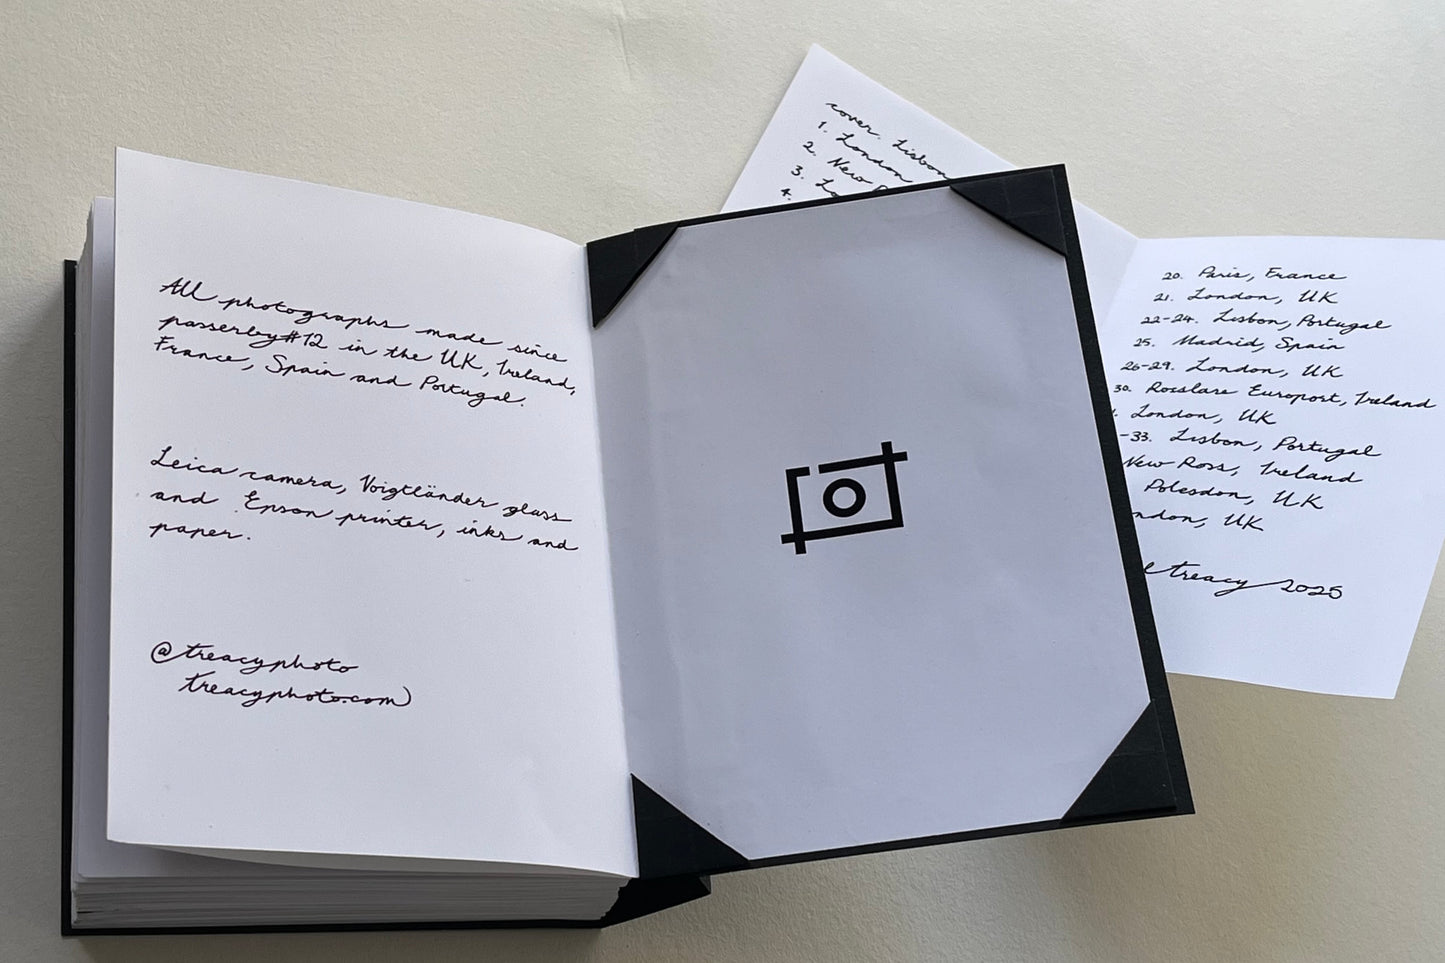 All photographs made since
passerby#12 in the UK, Ireland,
France, Spain and Portugal.
Leica camera, Voigtländer glass
and Epson printer, inks and
paper.
@treacyphoto
treacyphoto.com
cover. Lisbon
1. London
2. New
3.
4.
20. Paris, France
21. London, UK
22-24. Lisbon, Portugal
25. Madrid, Spain
26-29. London, UK
30. Rosslare Europort, Ireland
London, UK
-33. Lisbon, Portugal
New Ross, Ireland
Polesdon, UK
ndon, UK
treacy 2025